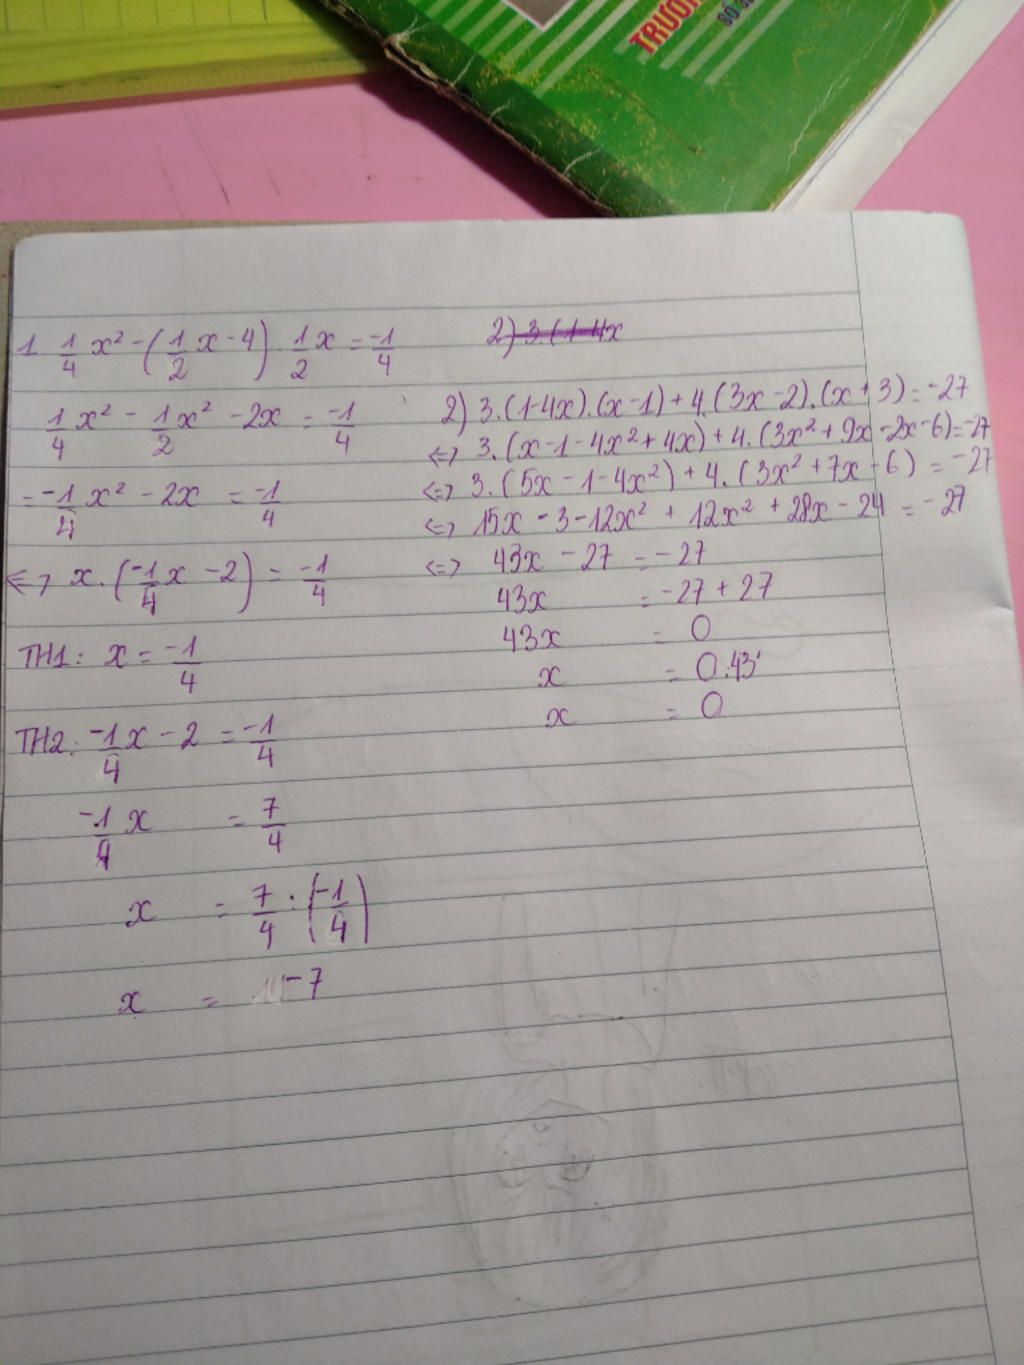 TRƯỜN
SỐ S
1 1/4 x² - (1/2 x - 4) . 1/2 x = -1/4
1/4 x² - 1/2 x² - 2x = -1/4
= -1/4 x² - 2x = -1/4
<=> x. (-1/4 x - 2) = -1/4
TH1: x = -1/4
TH2: -1/4 x - 2 = -1/4
-1/4 x = 7/4
x = 7/4 : (-1/4)
x = -7
2) 3.(1-4x
2) 3.(1-4x).(x-1)+4.(3x-2).(x+3)=-27
<=> 3.(x-1-4x²+4x)+4.(3x²+9x-2x-6)=-27
<=> 3.(5x-1-4x²)+4.(3x²+7x-6) = -27
<=> 15x-3-12x²+12x²+28x-24 = -27
<=> 43x - 27 = -27
43x = -27+27
43x = 0
x = 0:43
x = 0